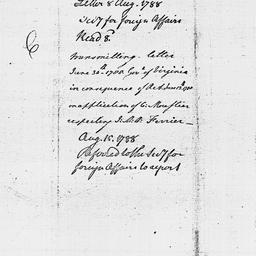 Letter 8 Aug. 1788
Secy for foreign Affairs
Read 8th
transmitting letter
June 30th 1788 Govr of Virginia
in consequence of Act June
on application of C. Moustier
respecting
Ferrier —
Aug. 15. 1788
Referred to the Secy for
foreign Affairs to report